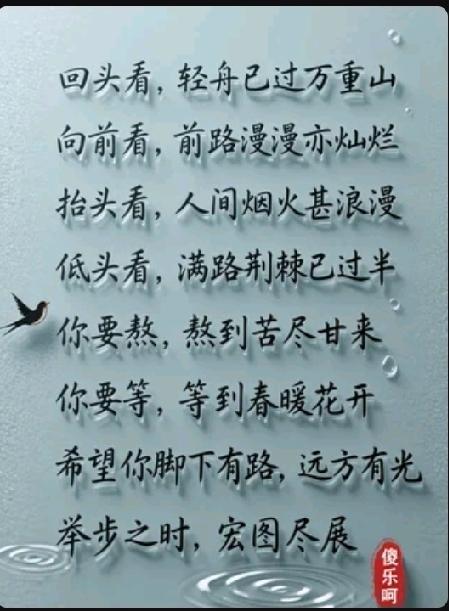 回头看，轻舟已过万重山
向前看，前路漫漫亦灿烂
抬头看，人间烟火甚浪漫
低头看，满路荆棘已过半
你要熬，熬到苦尽甘来
你要等，等到春暖花开
希望你脚下有路，远方有光
举步之时，宏图尽展
傻乐呵